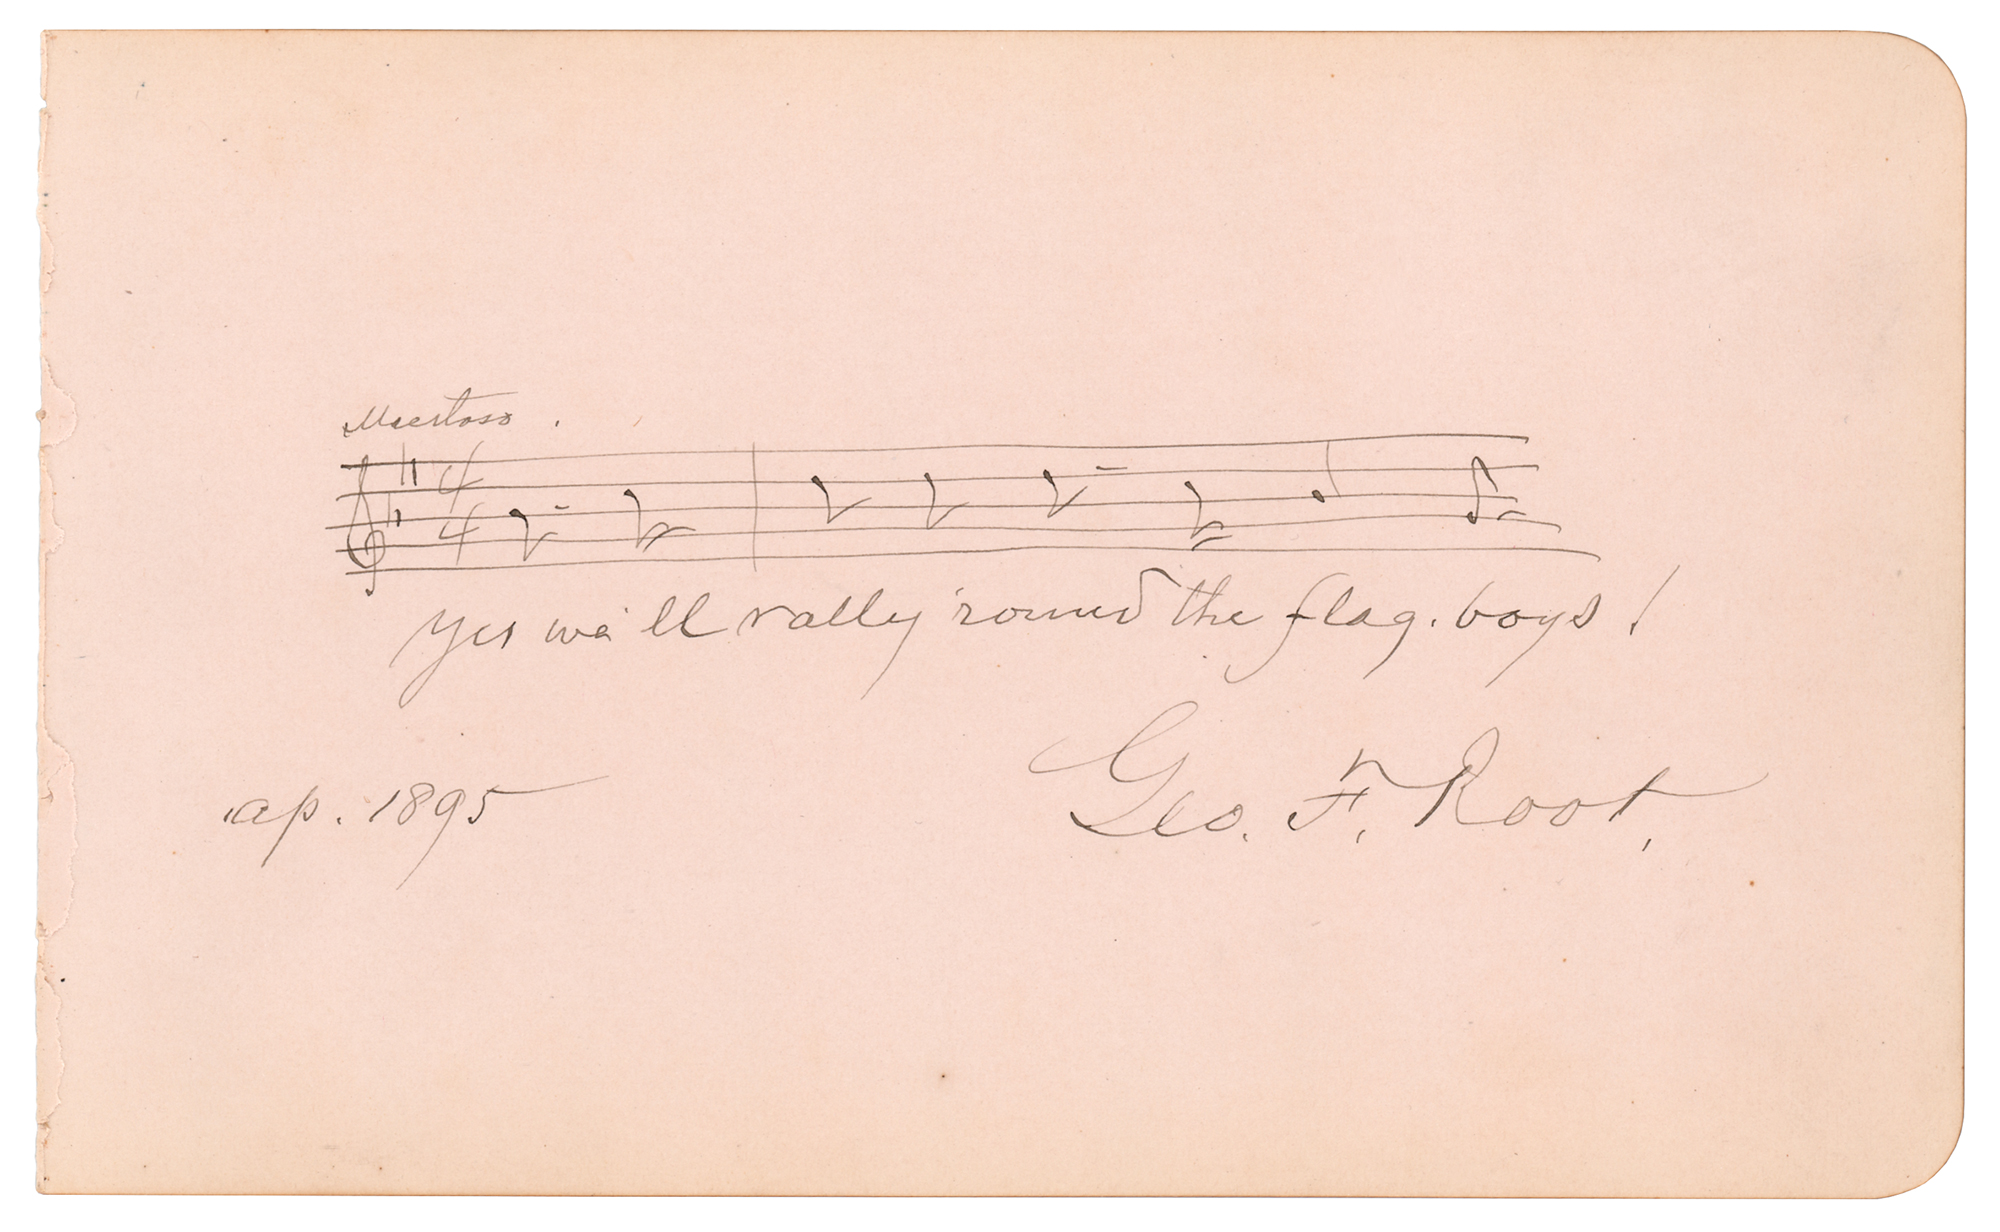 Maestoso.
4
4
Yes we'll rally 'round the flag. boys!
ap. 1895
Geo. F. Root.